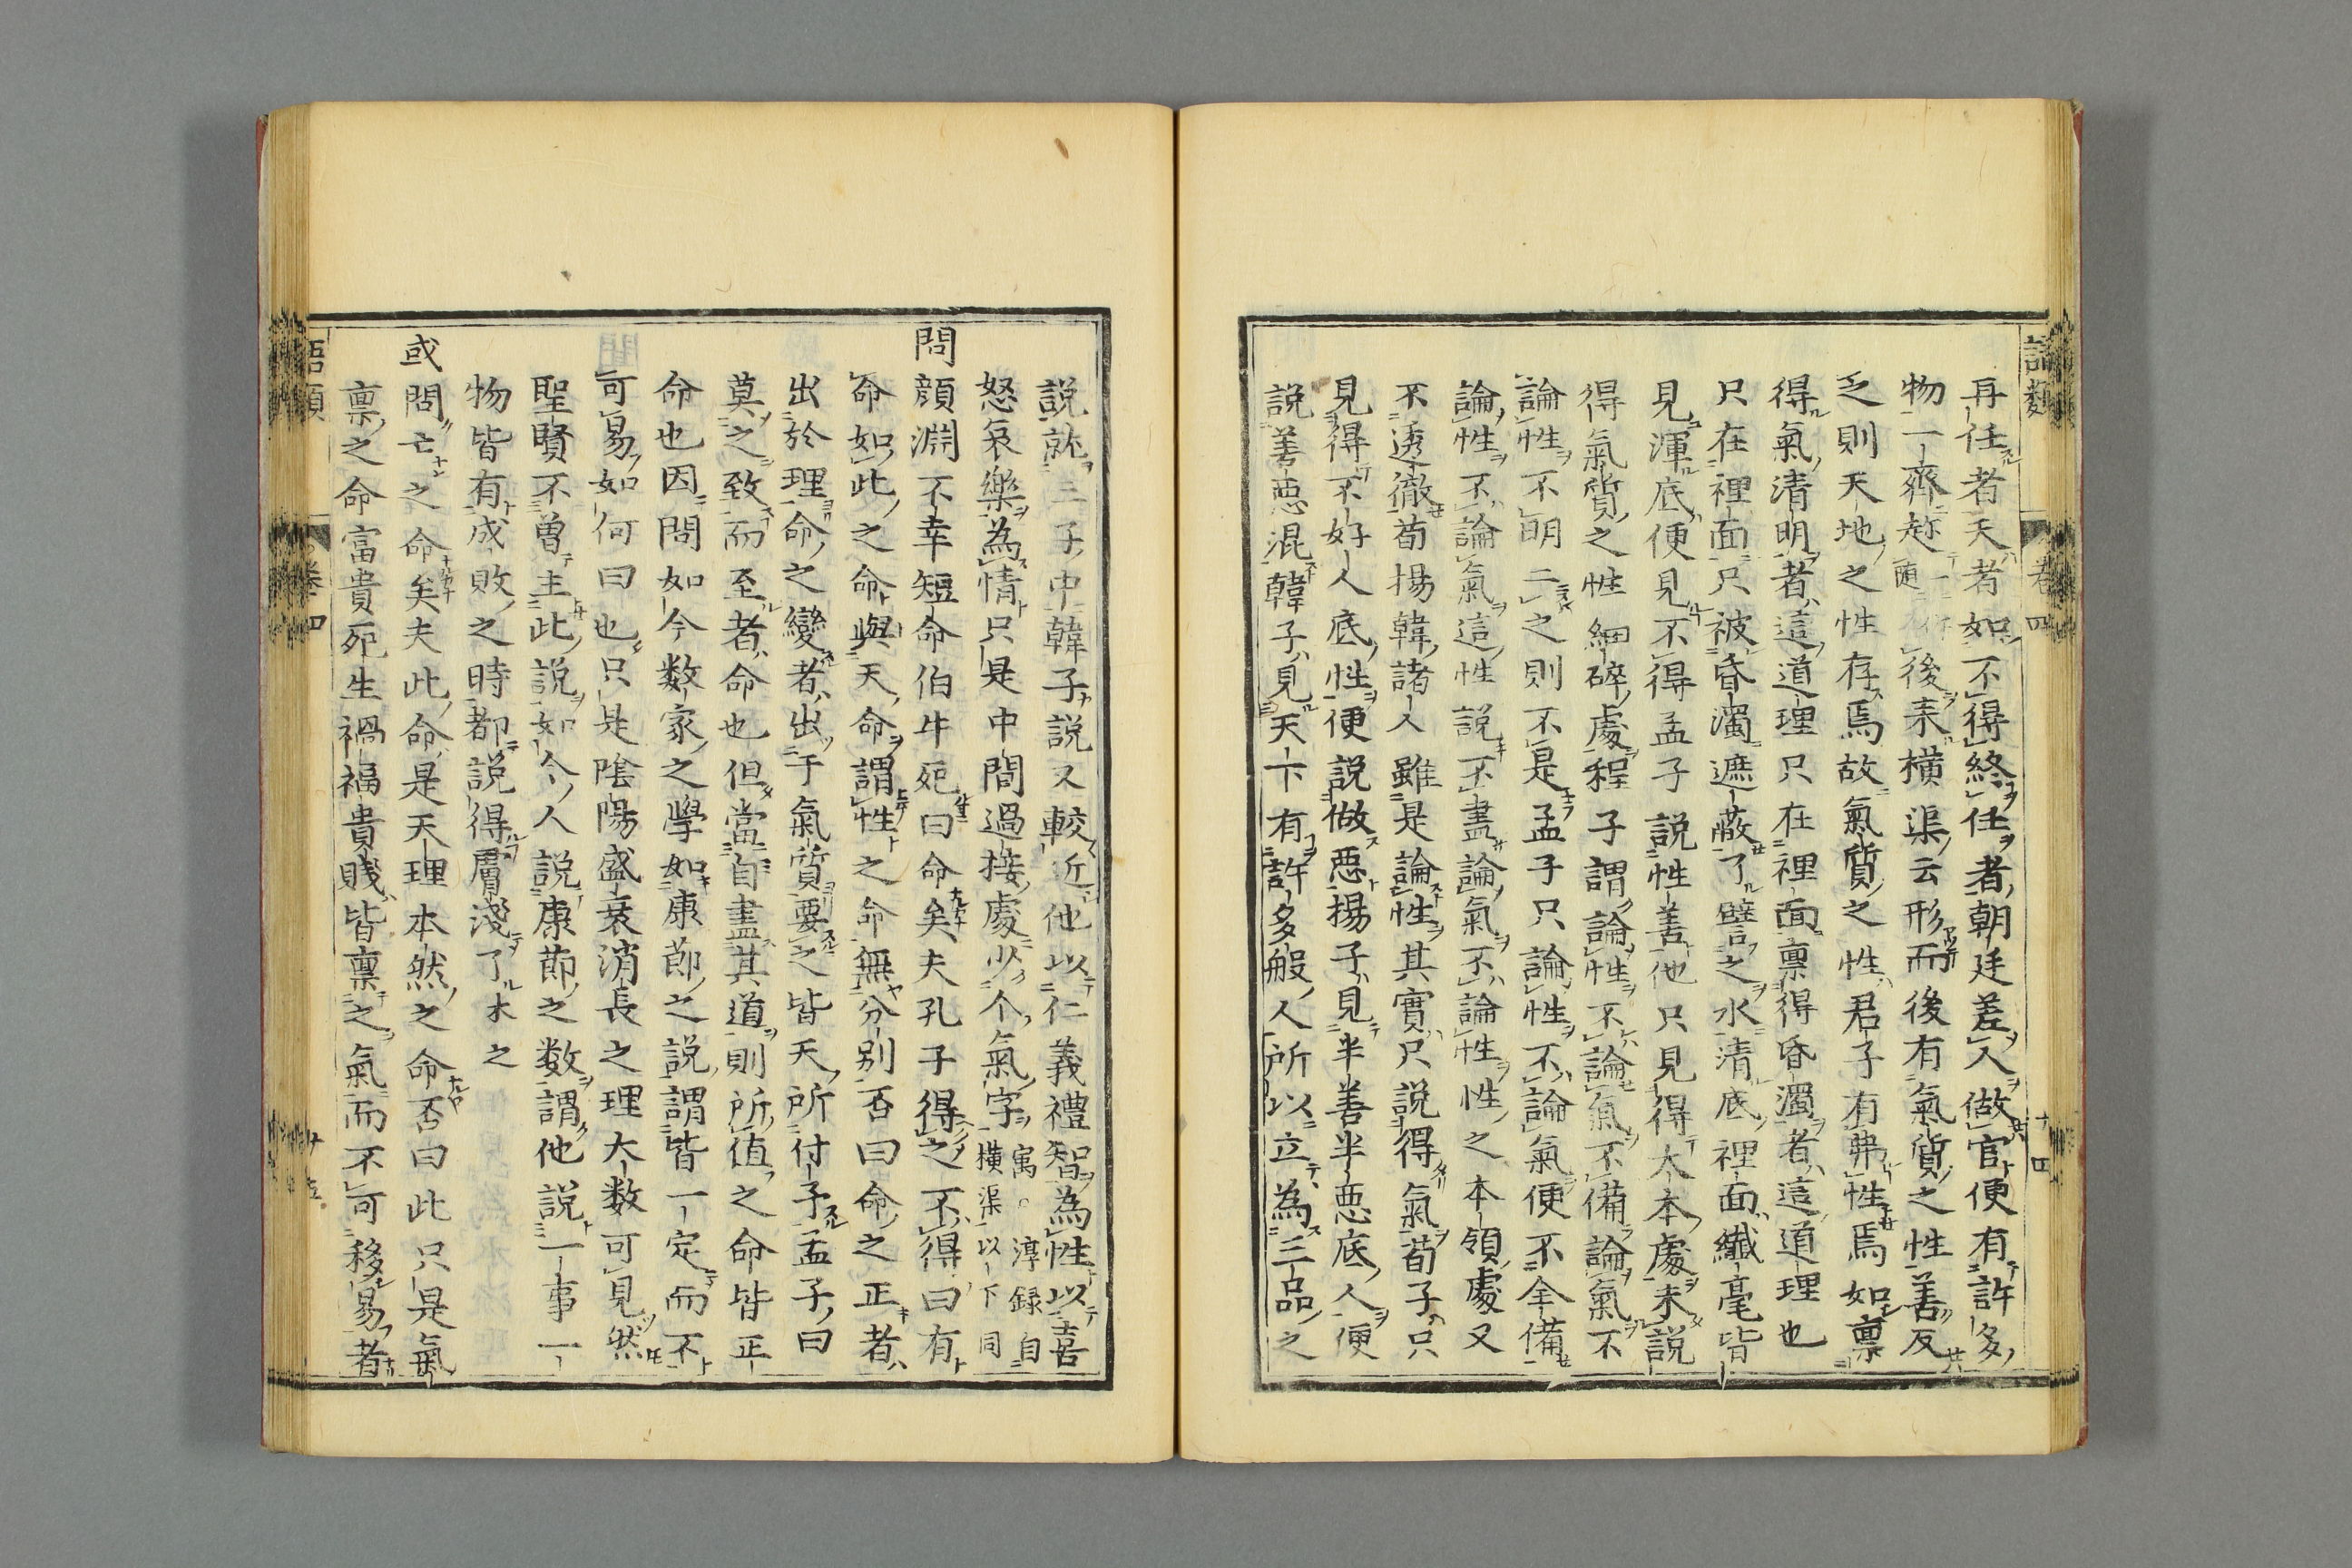 語類 卷四 十四
再任者天者如不得終任者朝廷差人做官便有許多
物一齊趂後來橫渠云形而後有氣質之性善反
之則天地之性存焉故氣質之性君子有弗性焉如禀
得氣清明者這道理只在裡面禀得昏濁者這道理也
只在裡面只被昏濁遮蔽了譬之水清底裡面纖毫皆
見渾底便見不得孟子說性善他只見得大本處未說
得氣質之性細碎處程子謂論性不論氣不備論氣不
論性不明二之則不是孟子只論性不論氣便不全備
論性不論氣這性說不盡論氣不論性性之本領處又
不透徹荀揚韓諸人雖是論性其實只說得氣荀子只
見得不好人底性便說做惡揚子見半善半惡底人便
說善惡混韓子見天下有許多般人所以立為三品之
說就三子中韓子說又較近他以仁義禮智為性以喜
怒哀樂為情只是中間過接處少个氣字寓。淳録自橫渠以下同
問顏淵不幸短命伯牛死曰命矣夫孔子得之不得曰有
命如此之命與天命謂性之命無分别否曰命之正者
出於理命之變者出于氣質要之皆天所付予孟子曰
莫之致而至者命也但當自盡其道則所值之命皆正
命也因問如今数家之學如康節之說謂皆一定而不
可易如何曰也只是隂陽盛衰消長之理大数可見然
聖賢不曾主此說如今人說康節之数謂他說一事一
物皆有成敗之時都說得膚淺了木之
或問亡之命矣夫此命是天理本然之命否曰此只是氣
禀之命富貴死生禍福貴賤皆禀之氣而不可移易者
語類 卷四